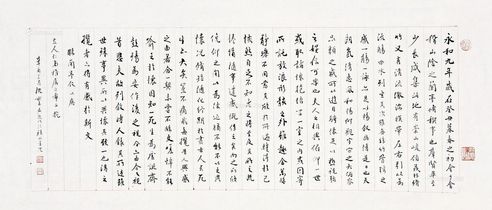 永和九年歲在癸丑暮春之初會于會
稽山陰之蘭亭脩禊事也群賢畢至
少長咸集此地有崇山峻領茂林脩
竹又有清流激湍暎帶左右引以為
流觴曲水列坐其次雖無絲竹管弦之
盛一觴一詠亦足以暢敘幽情是日也天
朗氣清惠風和暢仰觀宇宙之大俯察
品類之盛所以遊目騁懷足以極視聽
之娛信可樂也夫人之相與俯仰一世
或取諸懷抱悟言一室之內或因寄
所託放浪形骸之外雖趣舍萬殊
靜躁不同當其欣於所遇暫得於己
快然自足不知老之將至及其所之
既惓情隨事遷感慨係之矣向之所欣
俛仰之間以為陳迹猶不能不以之興
懷況脩短隨化終期於盡古人云死
生亦大矣豈不痛哉每攬昔人興感
之由若合一契未嘗不臨文嗟悼不能
喻之於懷固知一死生為虛誕齊
彭殤為妄作後之視今亦由今之視
昔悲夫故列敘時人錄其所述雖
世殊事異所以興懷其致一也後之
攬者亦將有感於斯文
臨蘭亭序